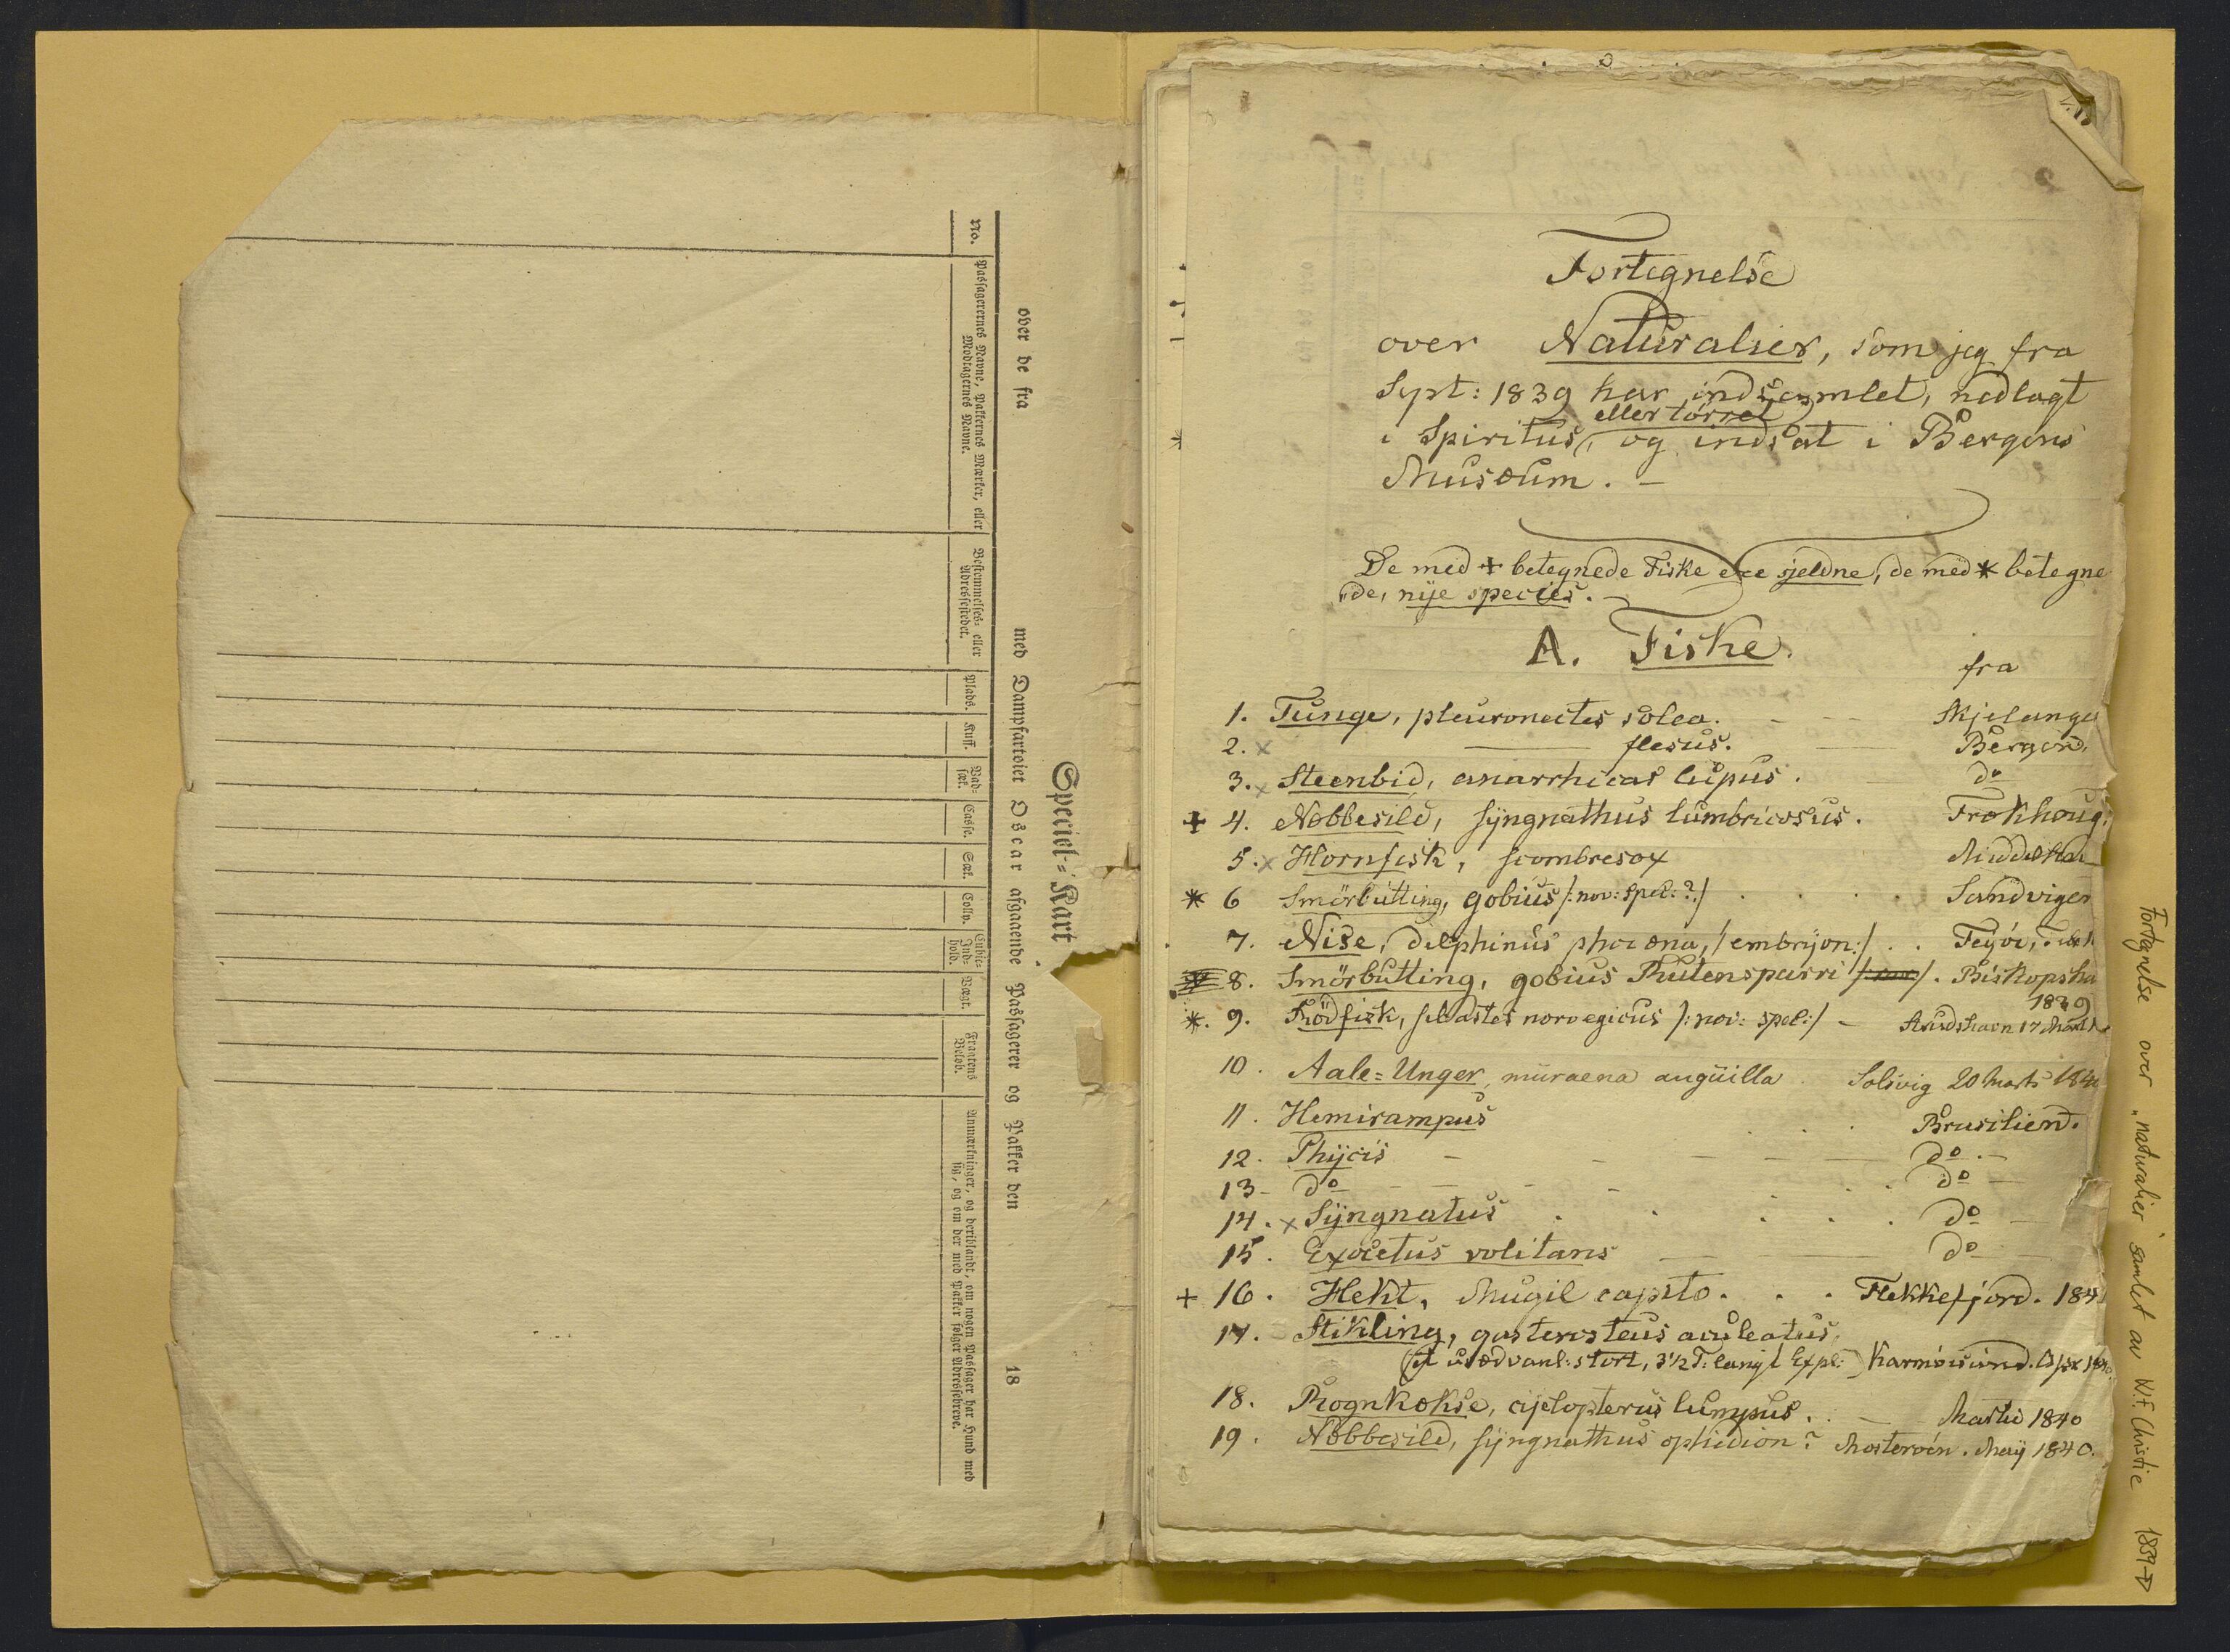 Speciel-Kart
over de fra med Dampfartoiet Oscar afgaaende Passagerer og Pakker den 18
No.
Passagerernes Navne, Pakkernes Mærker, eller
Modtagernes Navne.
Bestemmelses- eller
Adressestedet.
Plads.
Kuff.
Vad-
sæk.
Casse.
Sæk.
Colly.
Cubic-
Ind-
hold.
Vægt.
Fragtens
Beløb.
Anmærkninger, og deriblandt, om nogen Passager har Hund med
sig, og om der med Pakker følger Adressebreve.
Fortegnelse
over Naturalier, som jeg fra
Sept: 1839 har indsamlet, nedlagt
eller tørret
i Spiritus, og indsat i Bergens
Museum. -
De med + betegnede Fiske ere sjeldne, de med * betegne
"de, nye species. -
A. Fiske.
fra
1. Tunge, pleuronectes solea. - - - Skjelanger
2. x —— flesus. — Bergen.
3. x Steenbid, anarrhicas lupus. do
+ 4. Nobbesild, syngnathus lumbricosus.
5. x Hornfisk, scombresox
* 6 Smörbutting, gobius /: nov: spec: ?/ . . . . Sandvigen
7. Nise, delphinus phocæna, /embryon:/ . .
8. Smörbutting, gobius Rutensparri . Biskopsha
1839
*. 9. Rödfisk, sebastes norvegicus /: nov: spec:/ -
10. Aale-Unger, muraena anguilla . Solsvig 20 Marts 184
11. Hemirampus . . . Brasilien.
12. Phycis - - - - - do. -
13- do - - - - . . do -
14. x Syngnatus . . . . . do -
15. Exocetus volitans — — do -
+ 16. Hekt, Mugil capito. . . Flekkefjord. 184
17. Stikling, gasterosteus aculeatus,
(et usædvanl: stort, 3½ T: langt Expl:)
18. Rognkekse, cyclopterus lumpus. . — Martii 1840
19. Nobbesild, syngnathus ophidion? Mosterøen. May 1840.
Fortegnelse over "naturalier" samlet av W.F. Christie 1839→